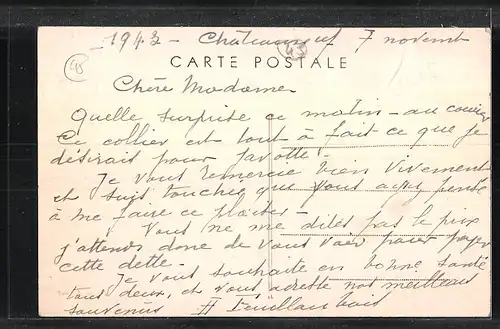 1943 - Châteauneuf 7 novemb
45
45
CARTE POSTALE
Chère Madame
Quelle surprise ce matin - au courrier
Ce collier est tout à fait ce que je
désirais pour
Je vous remercie bien vivement
et suis touchée que vous ayez pensé
à me faire ce plaisir -
Vous ne me dites pas le prix
j'attends donc de vous voir pour payer
cette dette -
Je vous souhaite en bonne santé
tous deux, et vous adresse nos meilleurs
souvenirs